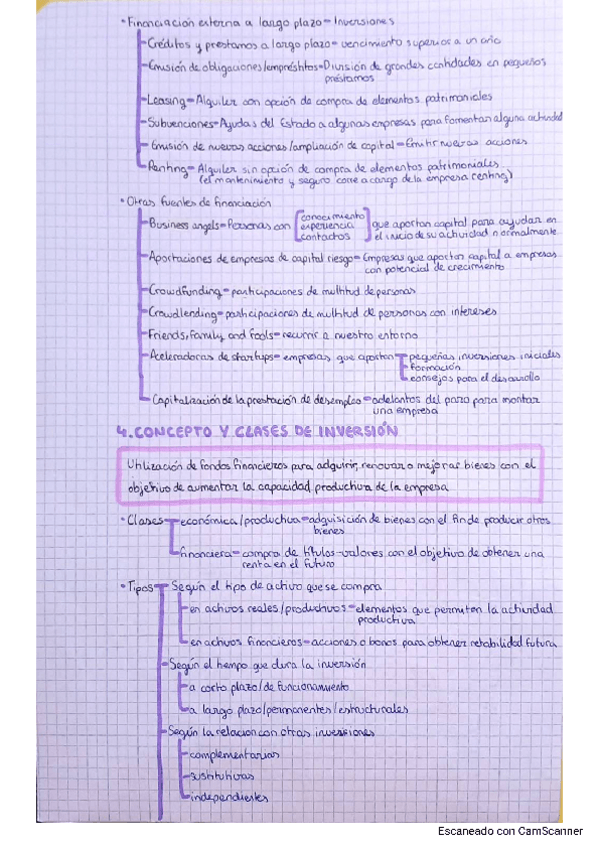 • Financiación externa a largo plazo = Inversiones
Créditos y préstamos a largo plazo = vencimiento superior a un año
Emisión de obligaciones/empréstitos = División de grandes cantidades en pequeños
préstamos
Leasing = Alquiler con opción de compra de elementos patrimoniales
Subvenciones = Ayudas del Estado a algunas empresas para fomentar alguna actividad
Emisión de nuevas acciones/ampliación de capital = Emitir nuevas acciones
Renting = Alquiler sin opción de compra de elementos patrimoniales
(el mantenimiento y seguro corre a cargo de la empresa renting)
• Otras fuentes de financiación
Business angels = Personas con conocimiento experiencia contactos que aportan capital para ayudar en
el inicio de su actividad normalmente
Aportaciones de empresas de capital riesgo = Empresas que aportan capital a empresas
con potencial de crecimiento
Crowdfunding = participaciones de multitud de personas
Crowdlending = participaciones de multitud de personas con intereses
Friends, family and fools = recurrir a nuestro entorno
Aceleradoras de startups = empresas que aportan pequeñas inversiones iniciales
formación
consejos para el desarrollo
Capitalización de la prestación de desempleo = adelantos del paro para montar
una empresa
4. CONCEPTO Y CLASES DE INVERSIÓN
Utilización de fondos financieros para adquirir, renovar o mejorar bienes con el
objetivo de aumentar la capacidad productiva de la empresa
• Clases económica/productiva = adquisición de bienes con el fin de producir otros
bienes
financiera = compra de títulos-valores con el objetivo de obtener una
renta en el futuro
• Tipos Según el tipo de activo que se compra
en activos reales/productivos = elementos que permiten la actividad
productiva
en activos financieros = acciones o bonos para obtener retabilidad futura
Según el tiempo que dura la inversión
a corto plazo/de funcionamiento
a largo plazo/permanentes/estructurales
Según la relacion con otras inversiones
complementarias
sustitutivas
independientes
Escaneado con CamScanner